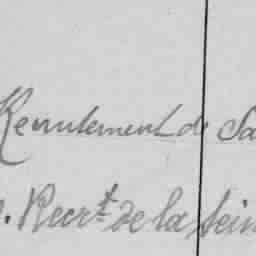 Recrutement de Sa
. Recrt de la Sein